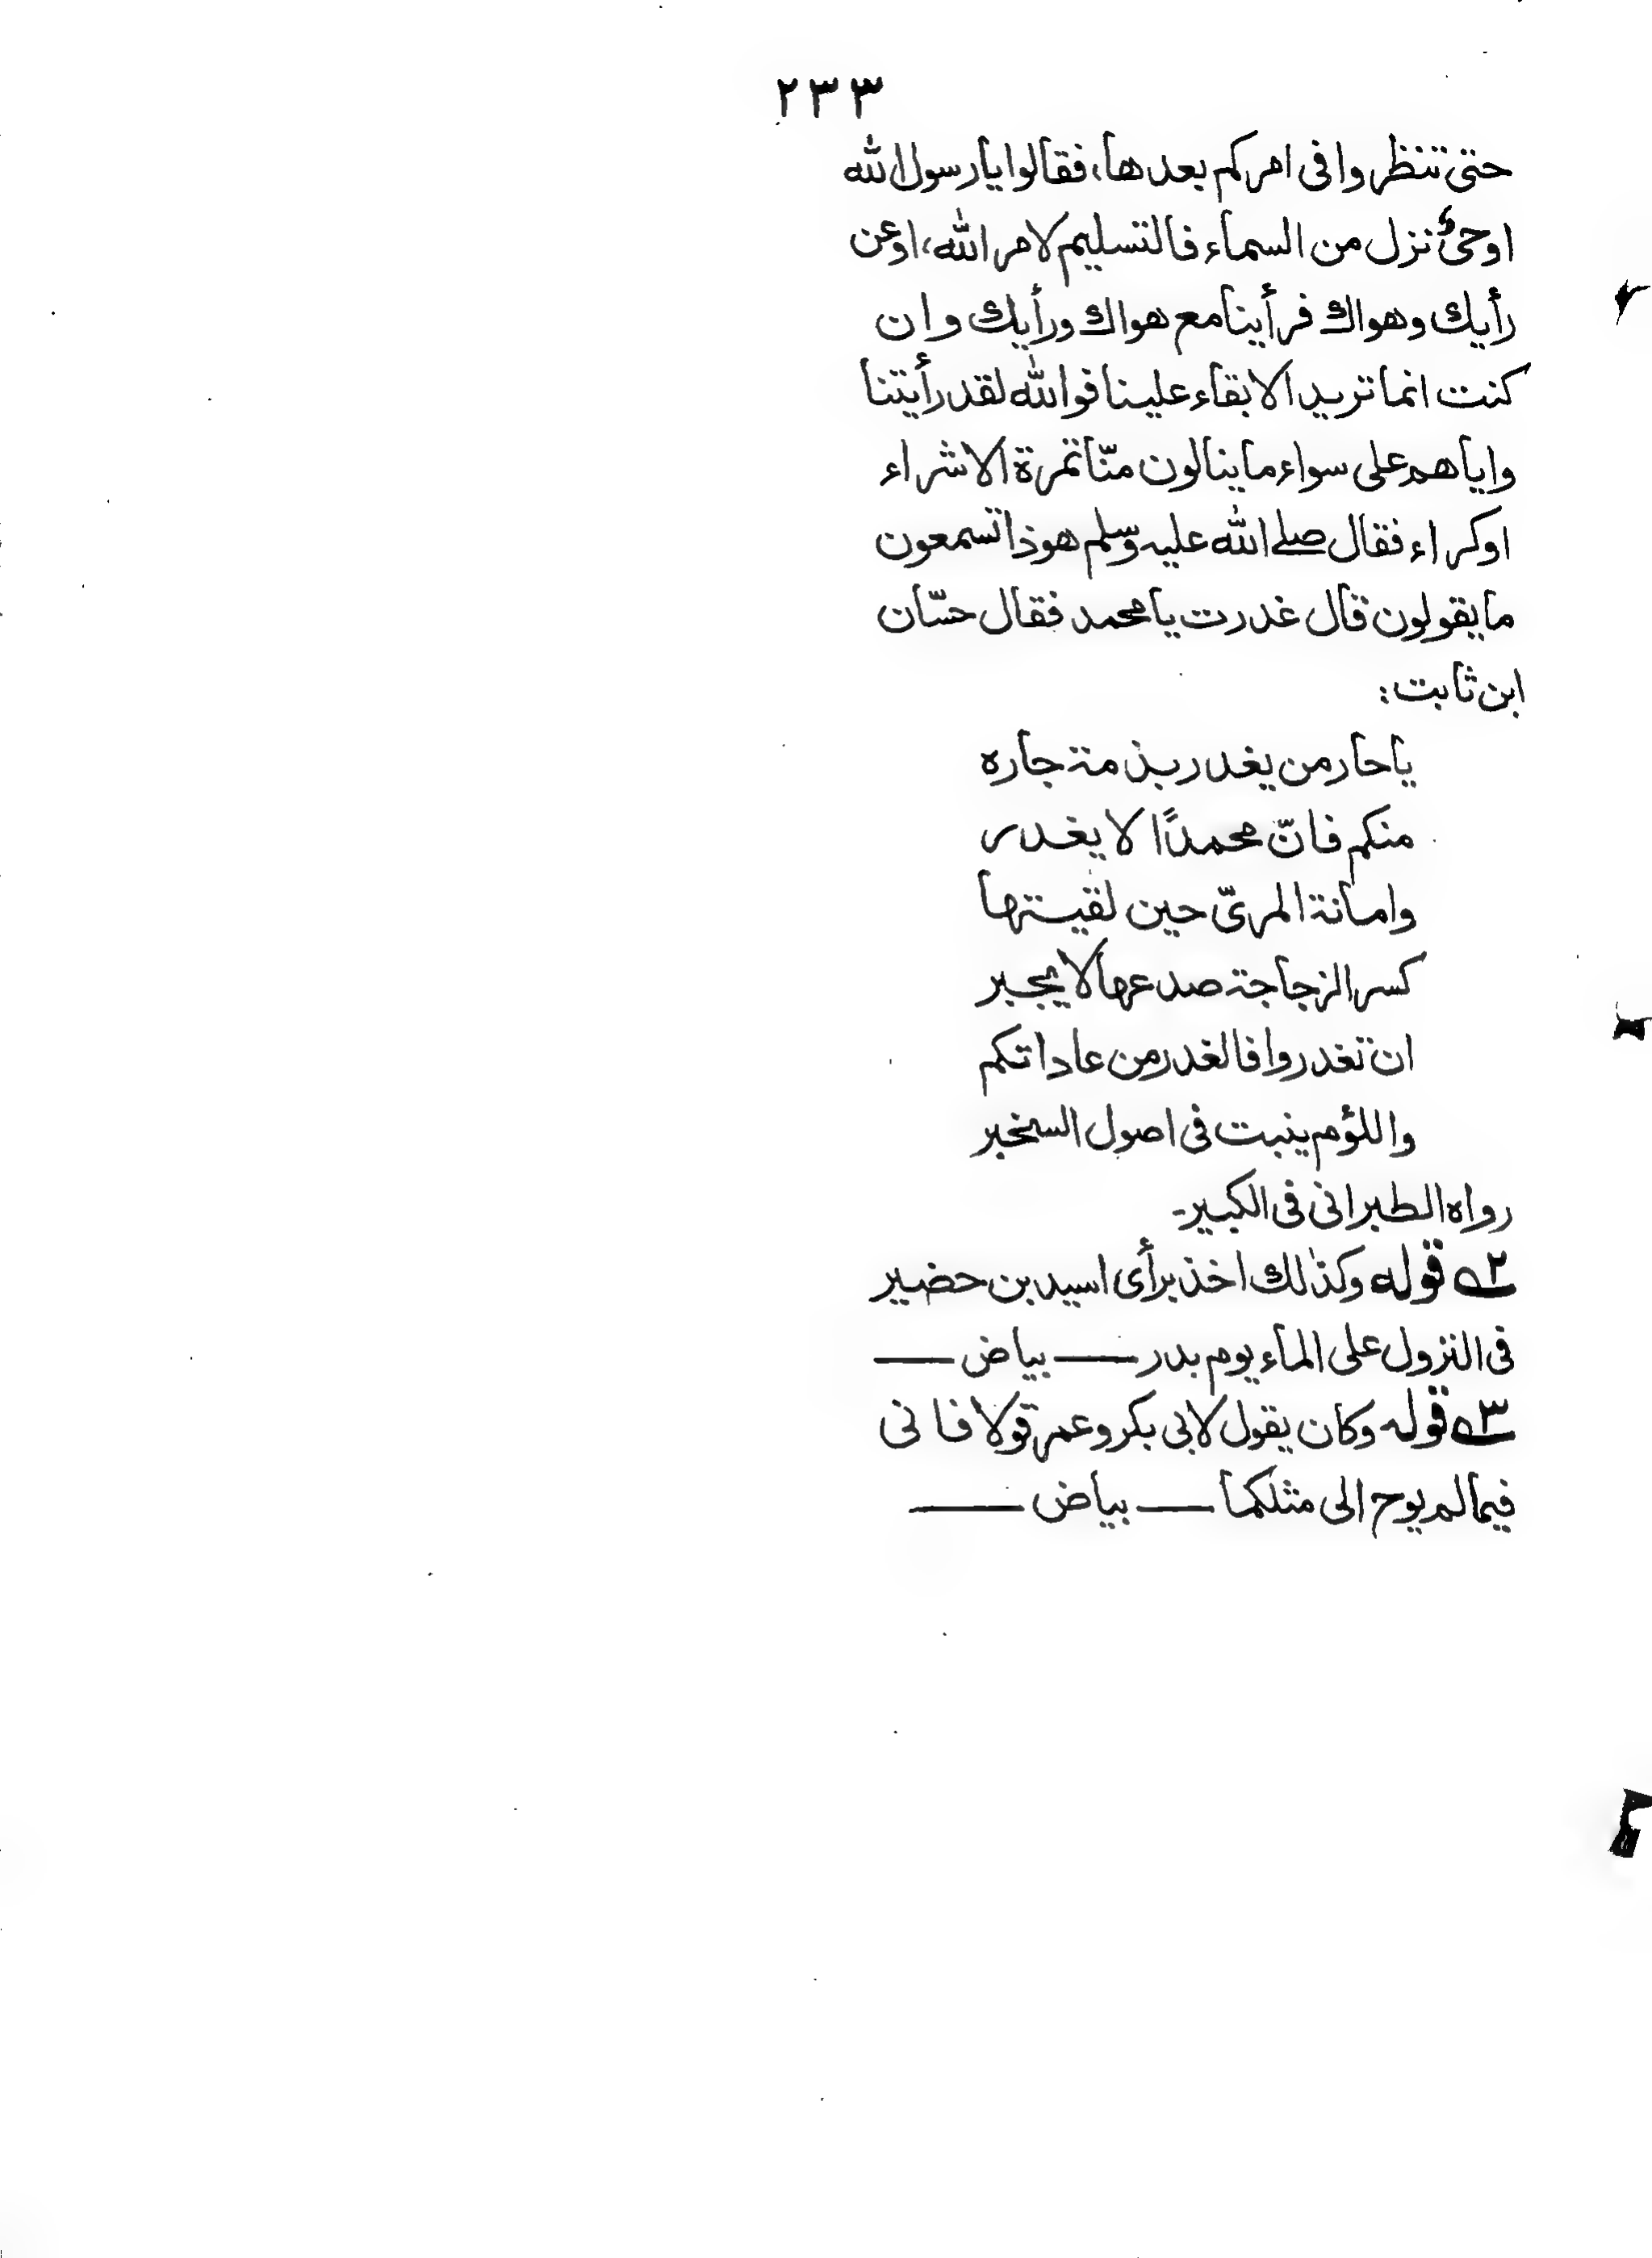 ۲۳۳
حتى تنظروا فى امركم بعدها، فقالوا يا رسول الله
اوحىٌ نزل من السماء فالتسليم لامر الله، اوعن
رأيك وهواك فرأينا مع هواك ورأيك وان
كنت انما تريد الابقاء علينا فوالله لقد رأيتنا
واياهم على سواء ما ينالون منّا تمرة الا شراء
اوكراء فقال صلے الله عليه وسلم هوذا تسمعون
ما يقولون قال غدرت يا محمد فقال حسّان
ابن ثابت:
يا حار من يغدر بذمة جاره
منكم فانّ محمدًا لا يغدر
وامانة المرىّ حين لقيتها
كسر الزجاجة صدعها لا يجبر
ان تغدروا فالغدر من عاداتكم
واللؤم ينبت فى اصول السخبر
رواه الطبرانى فى الكبير۔
۲ قوله وكذٰلك اخذ برأى اسيد بن حضير
فى النزول على الماء يوم بدر —— بياض ——
۳ قوله وكان يقول لابى بكر وعمر قولا فانى
فيما لم يوح الى مثلكما —— بياض ——